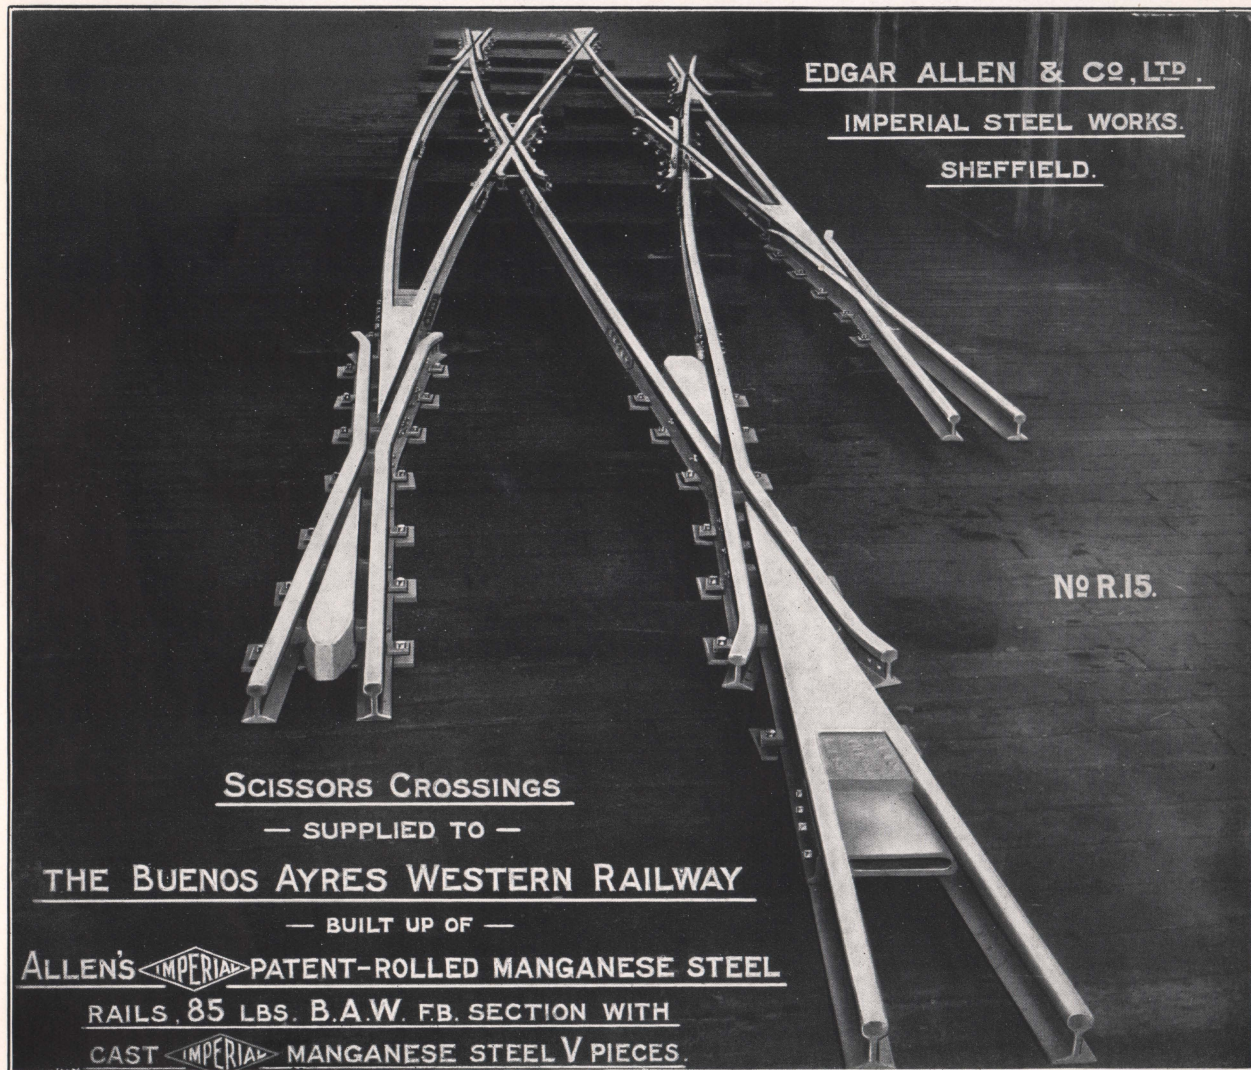 EDGAR ALLEN & Co, LTD.
IMPERIAL STEEL WORKS.
SHEFFIELD.
No R.15.
SCISSORS CROSSINGS
— SUPPLIED TO —
THE BUENOS AYRES WESTERN RAILWAY
— BUILT UP OF —
ALLEN'S IMPERIAL PATENT-ROLLED MANGANESE STEEL
RAILS, 85 LBS. B.A.W. F.B. SECTION WITH
CAST IMPERIAL MANGANESE STEEL V PIECES.